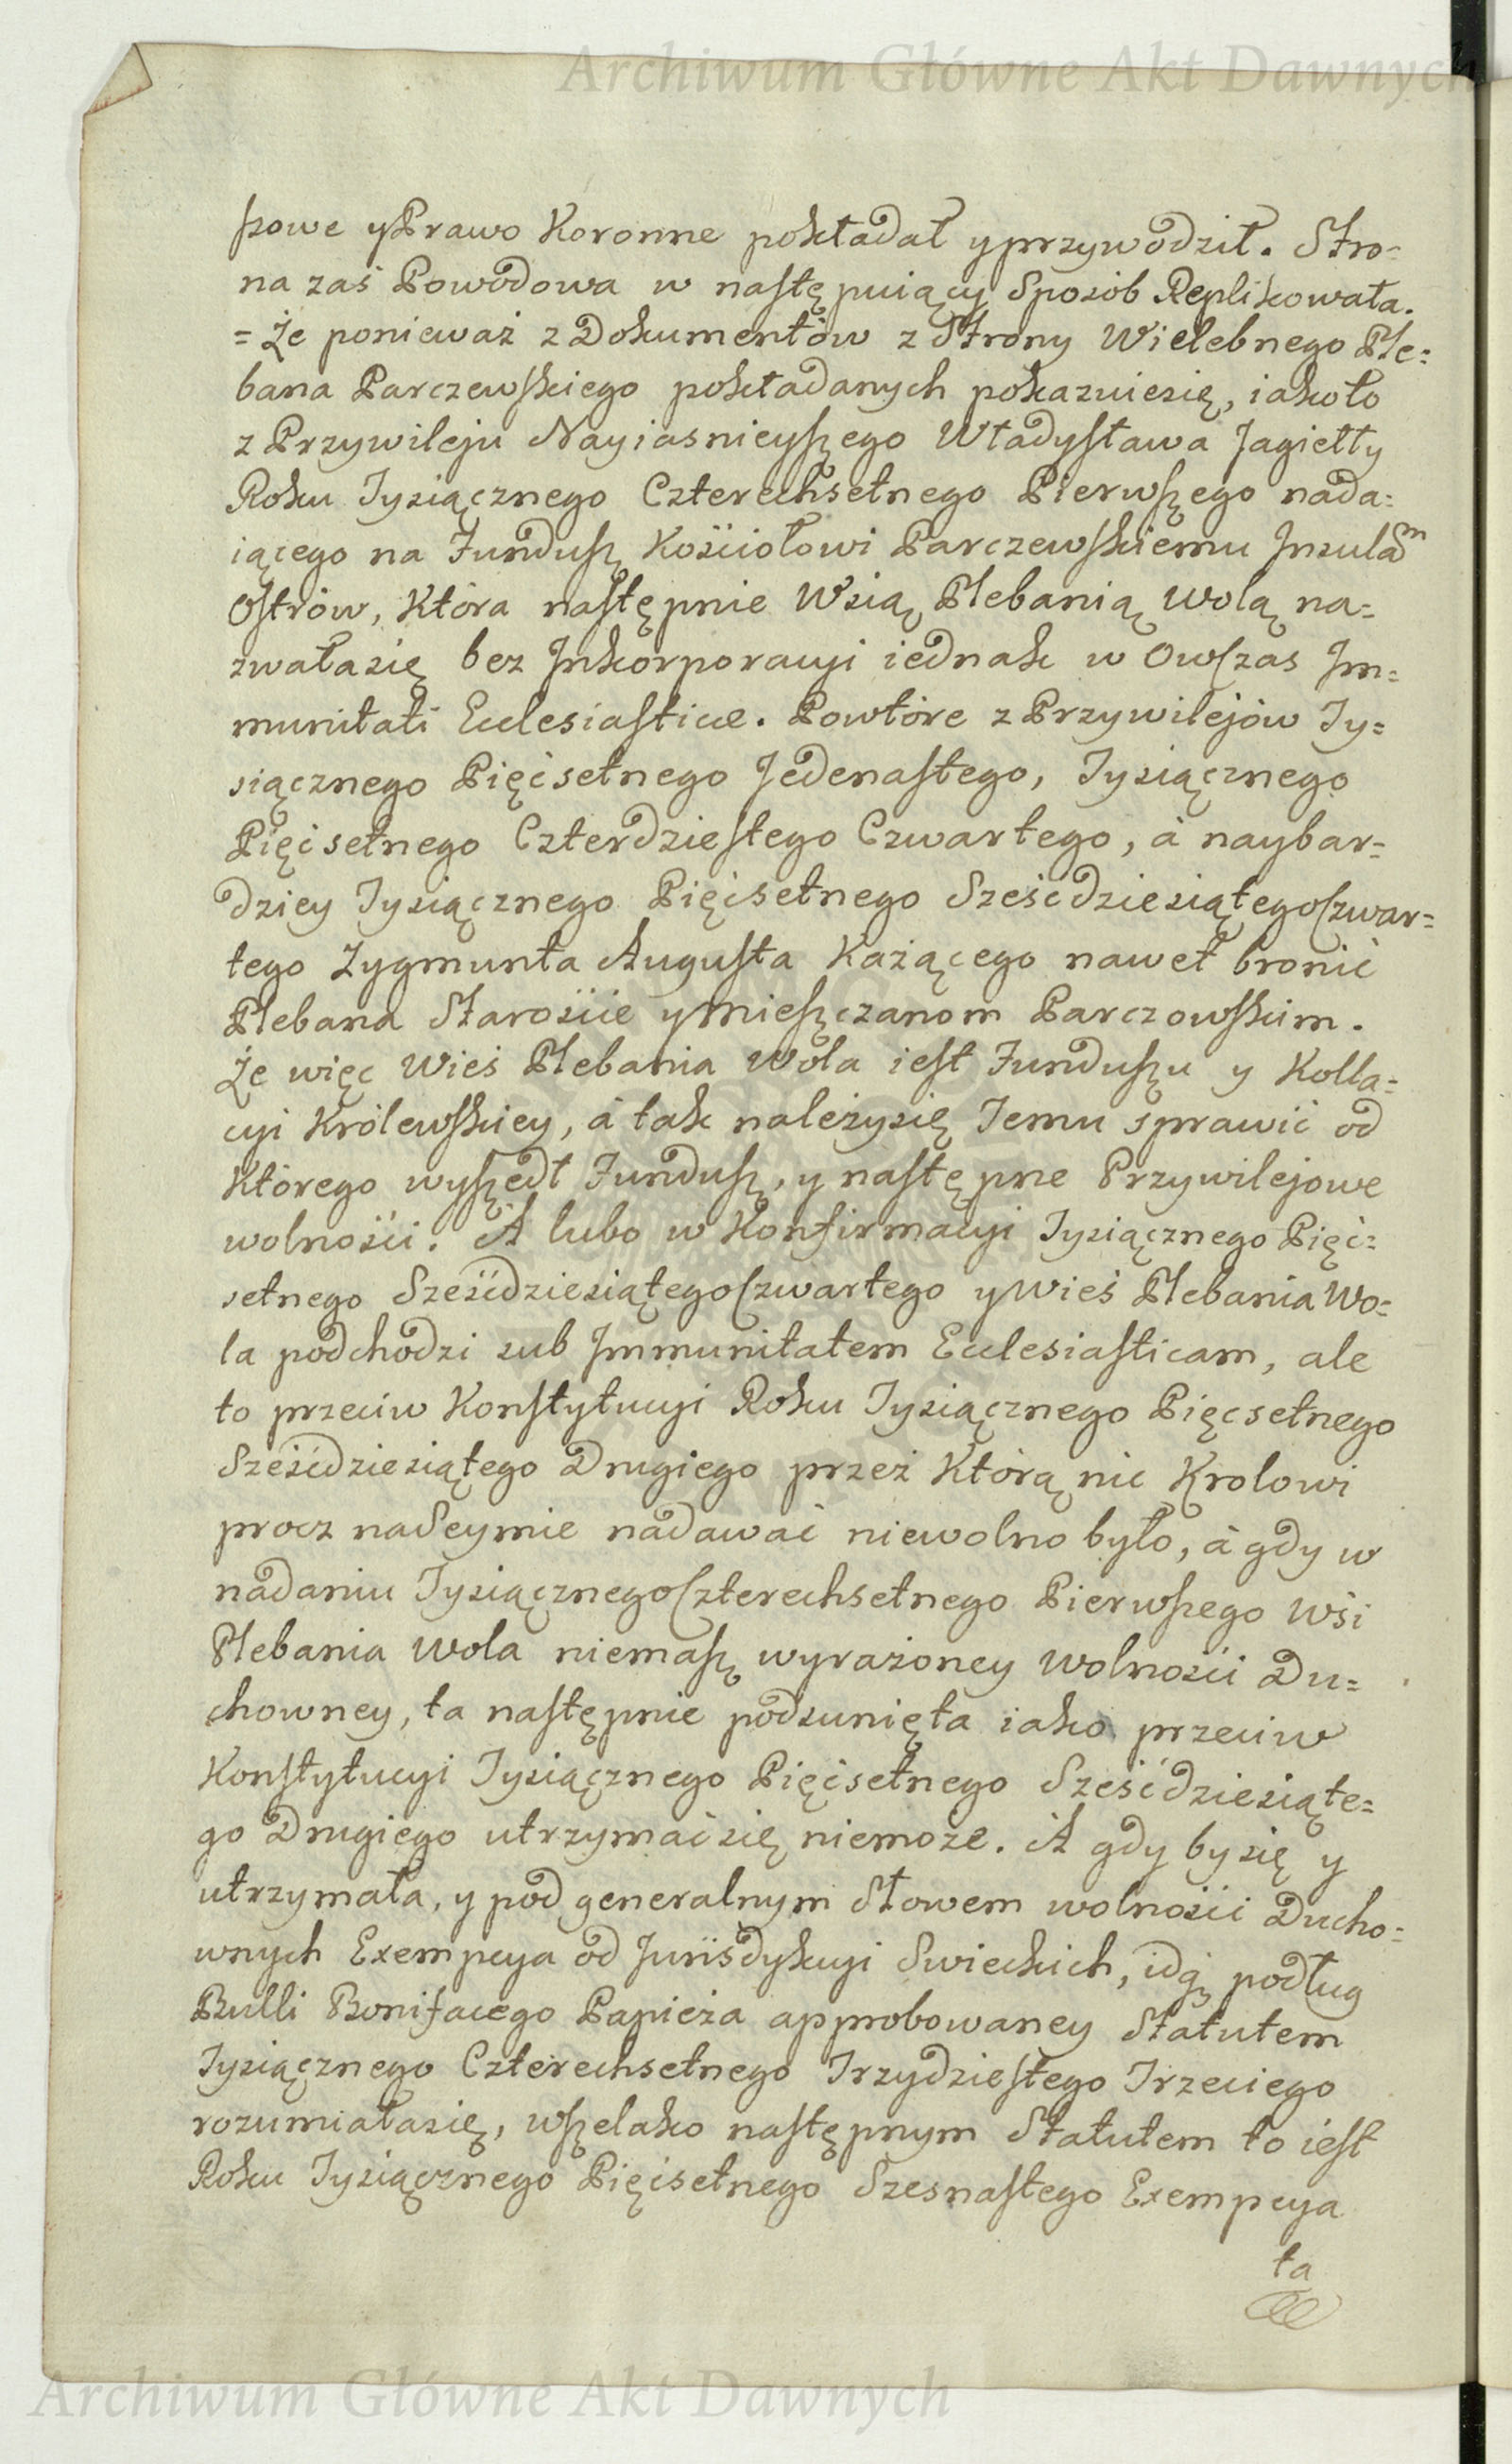 Archiwum Główne Akt Dawnych
szowe y Prawo Koronne pokładał y przywodził. Stro=
na zaś Powodowa w następuiący Sposob Replikowała.
= Że ponieważ z Dokumentów z Strony Wielebnego Ple=
bana Parczewskiego pokładanych pokazuiesię, iakoto
z Przywileju Nayiasnieyszego Władysława Jagiełły
Roku Tysiącznego Czterechsetnego Pierwszego nada=
iącego na Fundusz Kościołowi Parczewskiemu Insulam
Ostrów, Która następnie Wsią Plebanią Wolą na=
zwałasię bez Inkorporacyi iednak w Owczas Im=
munitati Ecclesiasticæ. Powtóre z Przywilejów Ty=
siącznego Pięćsetnego Jedenastego, Tysiącznego
Pięćsetnego Czterdziestego Czwartego, à naybar=
dziey Tysiącznego Pięćsetnego Sześćdziesiątego Czwar=
tego Zygmunta Augusta Każącego nawet bronić
Plebana Starościie y Mieszczanom Parczowskim.
Że więc Wieś Plebania Wola iest Funduszu y Kolla=
cyi Królewskiey, à tak należysię Jemu sprawić od
Którego wyszedł Fundusz, y następne Przywilejowe
wolności. A lubo w Konfirmacyi Tysiącznego Pięć=
setnego Sześćdziesiątego Czwartego y Wieś Plebania Wo=
la podchodzi sub Immunitatem Ecclesiasticam, ale
to przeciw Konstytucyi Roku Tysiącznego Pięcsetnego
Sześćdziesiątego Drugiego przez Którą nic Krolowi
procz na Seymie nadawać niewolno było, à gdy w
nadaniu Tysiącznego Czterechsetnego Pierwszego Wsi
Plebania Wola niemasz wyrażoney Wolności Du=
chowney, ta następnie podsunięta iako przeciw
Konstytucyi Tysiącznego Pięćsetnego Sześćdziesiąte=
go Drugiego utrzymać się niemoże. A gdy by się y
utrzymała, y pod generalnym Słowem wolności Ducho=
wnych Exempcya od Jurisdykcyi Swieckich, idą podług
Bulli Bonifacego Papieża approbowaney Statutem
Tysiącznego Czterechsetnego Trzydziestego Trzeciego
rozumiałasię, wszelako następnym Statutem to iest
Roku Tysiącznego Pięćsetnego Szesnastego Exempcya
ta
Archiwum Główne Akt Dawnych